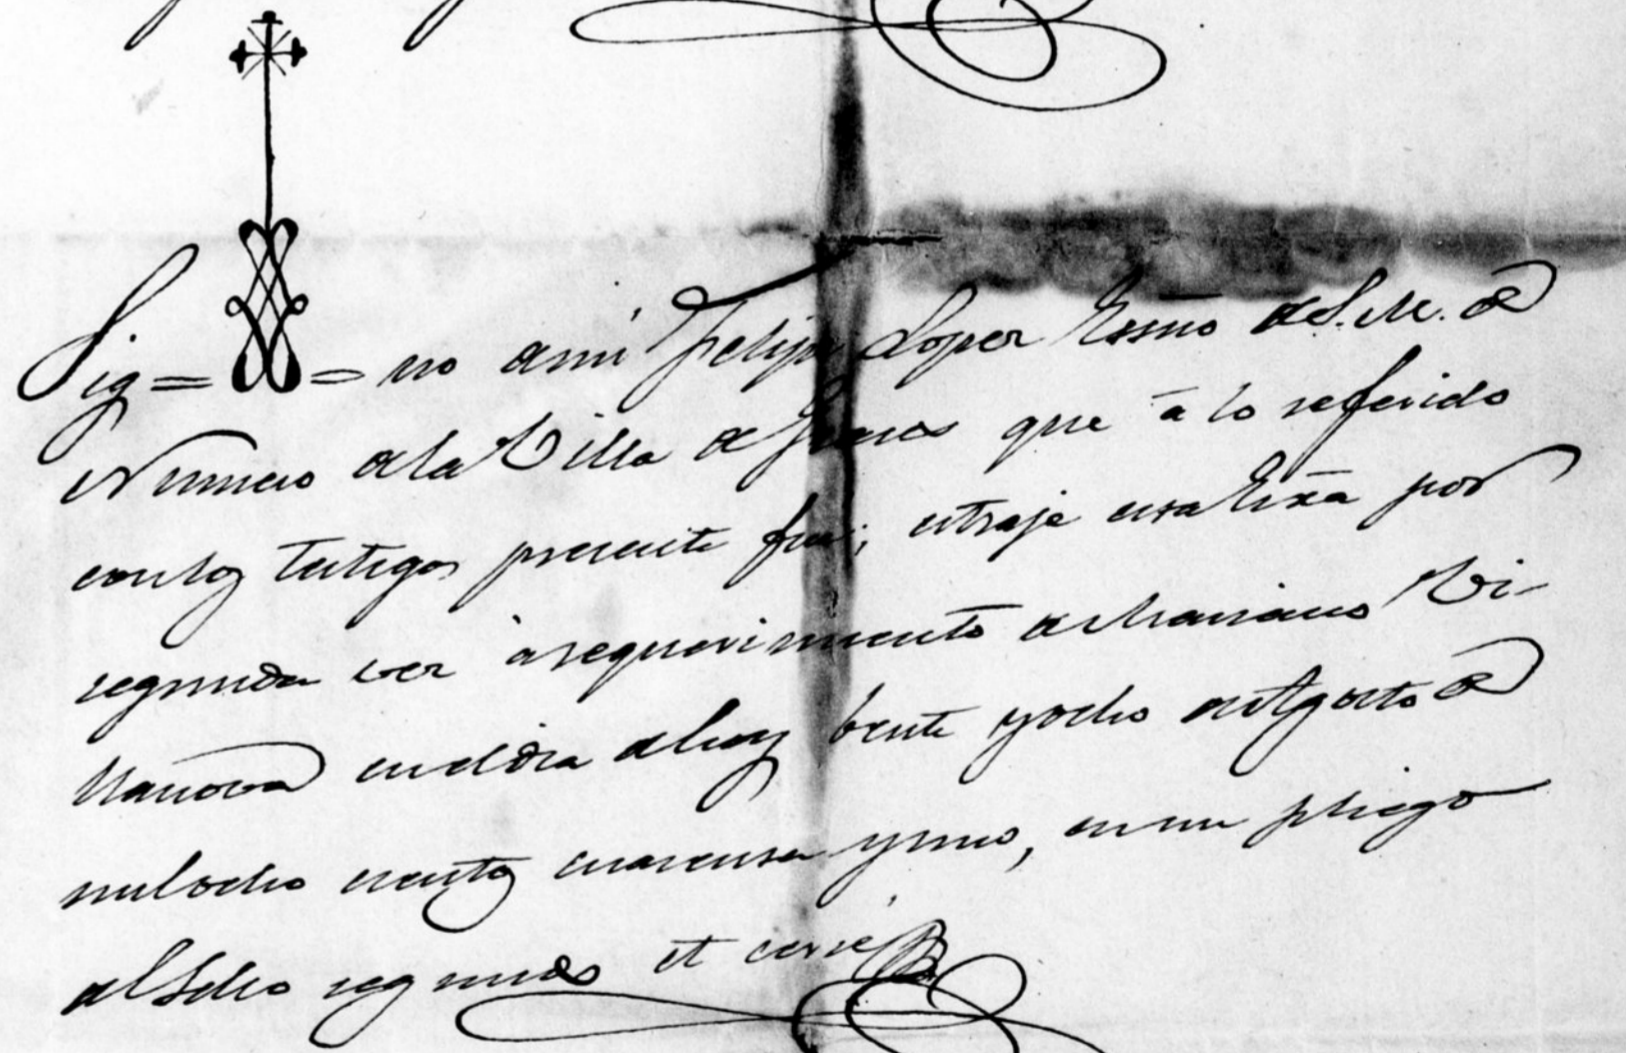 Sig = = no de mi Felipe Lopez Essno de S. M. de
Numero de la Villa de que á lo referido
con los testigos presente fui; extraje esta Essra por
segunda vez á requerimiento de Mariano Vi-
llanova en el dia de hoy veinte y ocho de Agosto de
mil ocho cientos cuarenta y uno, en un pliego
del Sello segundo et cerré